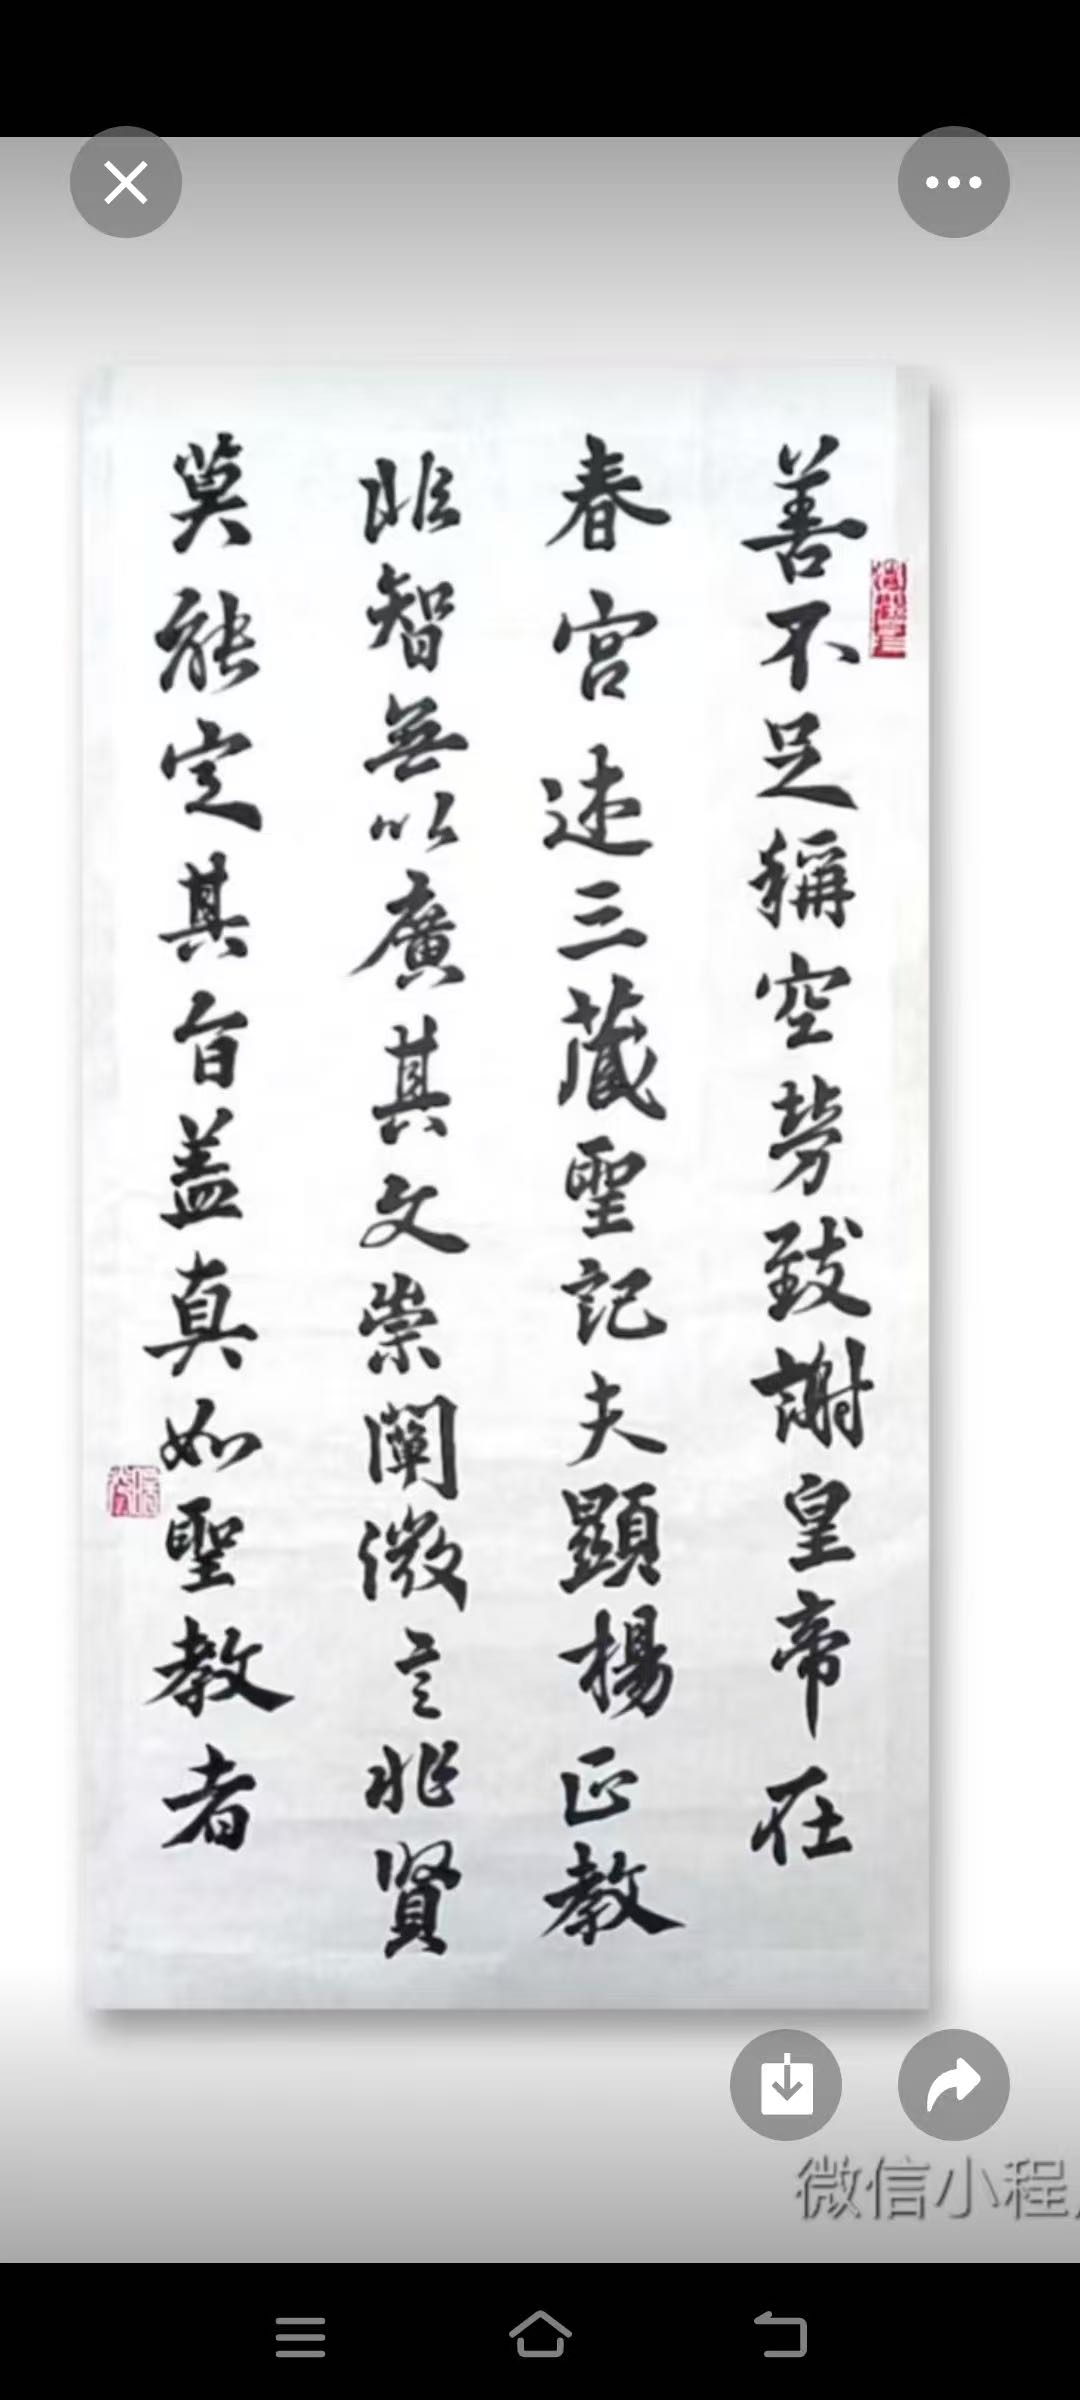 善不足稱空勞致謝皇帝在
春宮述三藏聖記夫顯楊正教
非智無以廣其文崇闡微言非賢
莫能定其旨盖真如聖教者
微信小程